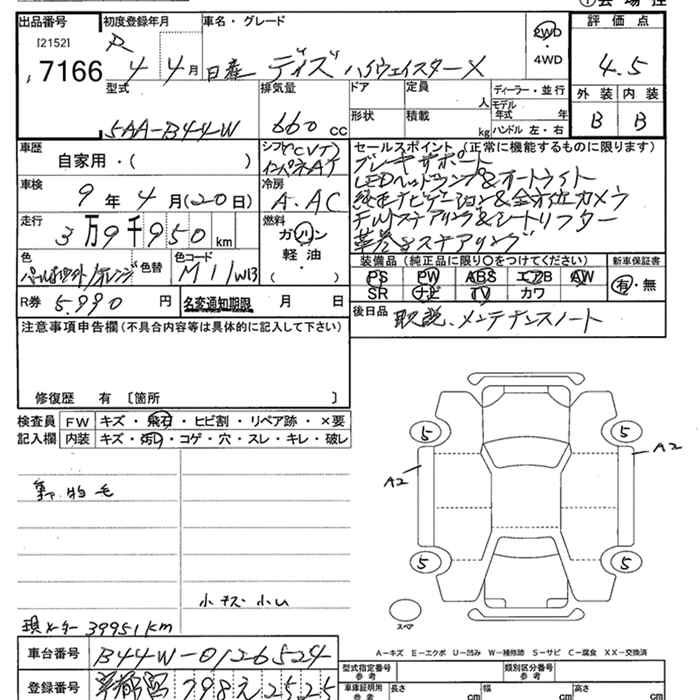 出品番号 初度登録年月 車名・グレード 評価点
[2152] R 2WD
7166 4 4月 日産 デイズ ハイウェイスターX ・4WD 4.5
型式 排気量 ドア 定員 人 ディーラー・並行 外装 内装
形状 積載 kg モデル年式 年 ハンドル 左・右
5AA-B44W 660 CC B B
車歴 自家用・( ) シフト(CVT) インパネAT
セールスポイント(正常に機能するものに限ります)
ブレーキサポート
LEDヘッドランプ&オートライト
純正ナビゲーション&全方位カメラ
チルトステアリング&シートリフター
革巻きステアリング
車検 9年 4月(20日) 冷房 A.AC
走行 3万9千950km 燃料 ガソリン 軽油・( )
色 パールホワイト/オレンジ 色替 色コード M11/W13
装備品(純正品に限り○をつけてください) 新車保証書
PS PW ABS エアB AW 有・無
SR ナビ TV カワ
R券 5,990円 名変通知期限 月 日
後日品 取説、メンテナンスノート
注意事項申告欄(不具合内容等は具体的に記入して下さい)
修復歴 有 [箇所 ]
検査員 FW キズ・飛石・ヒビ割・リペア跡・×要
記入欄 内装 キズ・汚れ・コゲ・穴・スレ・キレ・破レ
5 5
A2 A2
5 5
小キズ 小凹
現メーター 39951km
スペア
A-キズ E-エクボ U-凹み W-補修跡 S-サビ C-腐食 XX-交換済
車台番号 B44W-0126524
型式指定番号 参考 類別区分番号 参考
登録番号 京都 798 え 2525
車庫証明用 参考 長さ cm 幅 cm 高さ cm